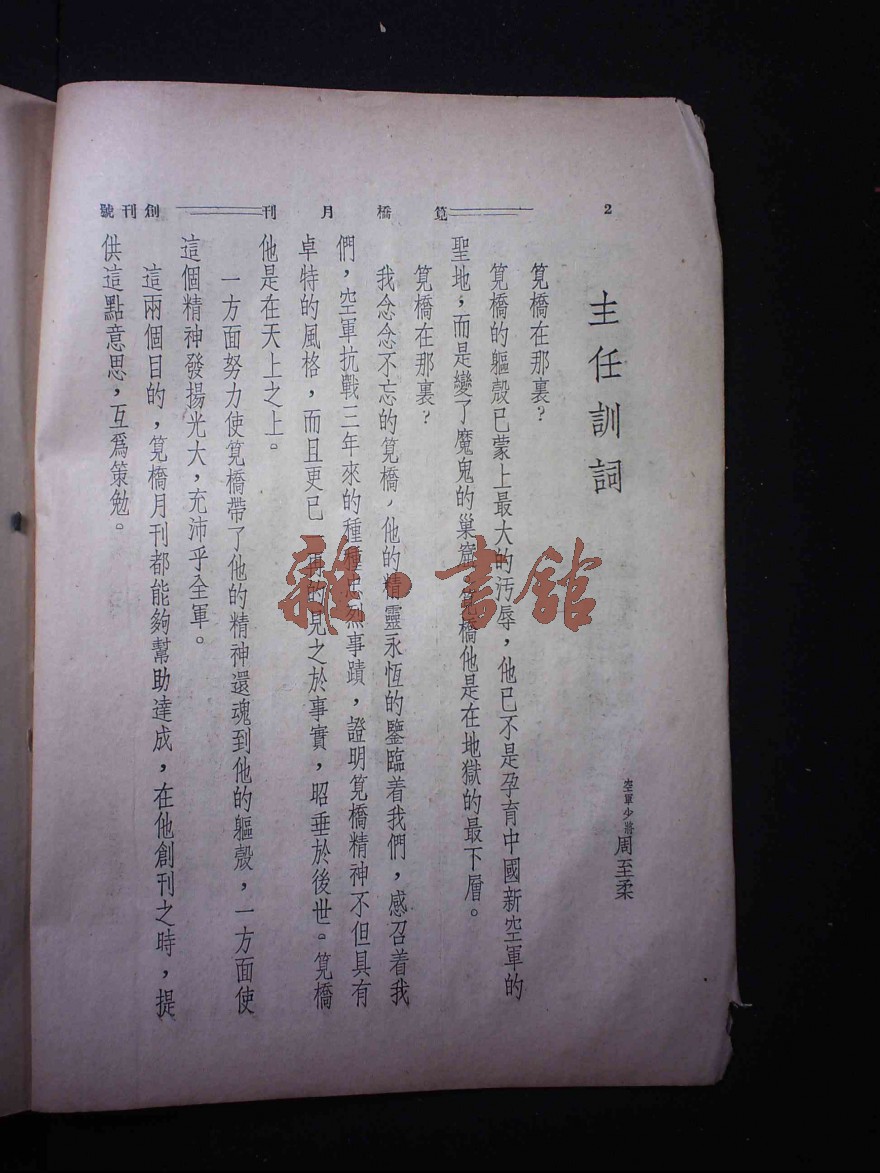 2
筧橋月刊
創刊號
主任訓詞
空軍少將周至柔
筧橋在那裏?
筧橋的軀殼已蒙上最大的汚辱,他已不是孕育中國新空軍的
聖地;而是變了魔鬼的巢窟筧橋他是在地獄的最下層。
筧橋在那裏?
我念念不忘的筧橋,他的精靈永恆的鑒臨着我們,感召着我
們,空軍抗戰三年來的種種忠烈事蹟,證明筧橋精神不但具有
卓特的風格,而且更已一再的見之於事實,昭垂於後世。筧橋
他是在天上之上。
一方面努力使筧橋帶了他的精神還魂到他的軀殼,一方面使
這個精神發揚光大,充沛乎全軍。
這兩個目的,筧橋月刊都能夠幫助達成,在他創刊之時,提
供這點意思,互爲策勉。
雜·書館